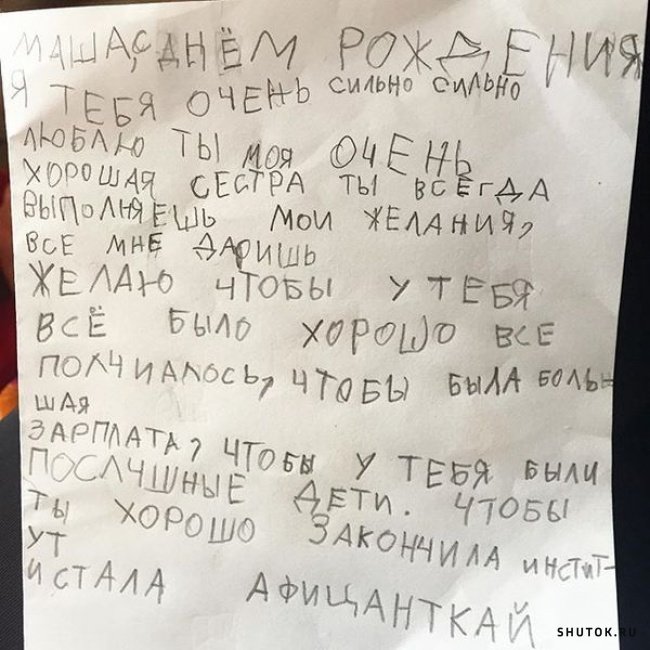 МАША, С ДНЁМ РОЖДЕНИЯ
Я ТЕБЯ ОЧЕНЬ СИЛЬНО СИЛЬНО
ЛЮБЛЮ ТЫ МОЯ ОЧЕНЬ
ХОРОШАЯ СЕСТРА ТЫ ВСЕГДА
ВЫПОЛНЯЕШЬ МОИ ЖЕЛАНИЯ,
ВСЕ МНЕ ДАРИШЬ
ЖЕЛАЮ ЧТОБЫ У ТЕБЯ
ВСЁ БЫЛО ХОРОШО ВСЕ
ПОЛЧИАЛОСЬ, ЧТОБЫ БЫЛА БОЛЬ-
ШАЯ
ЗАРПЛАТА, ЧТОБЫ У ТЕБЯ БЫЛИ
ПОСЛУШНЫЕ ДЕТИ. ЧТОБЫ
ТЫ ХОРОШО ЗАКОНЧИЛА ИНСТИТ-
УТ
И СТАЛА АФИЦАНТКАЙ
SHUTOK.RU